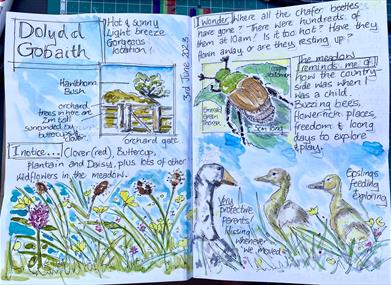 Dolydd
Gobaith
Hot & sunny
Light breeze
Gorgeous
location!
3rd June 2023
Hawthorn
Bush
orchard
trees in here are
2m tall
surrounded by
buttercups &
clover.
orchard gate
I notice... Clover (red), Buttercup,
plantain and Daisy, plus lots of other
wildflowers in the meadow.
I wonder, Where all the chafer beetles
have gone? There were hundreds of
them at 10am! Is it too hot? Have they
flown away or are they resting up?
Emerald
Green
thorax
abdomen
The meadow
reminds me of
how the country
side was when I
was a child.
Buzzing bees,
flower rich places,
freedom & long
days to explore
& play.
Very
protective
Parents,
Hissing
whenever
we moved
Goslings
feeding
&
exploring